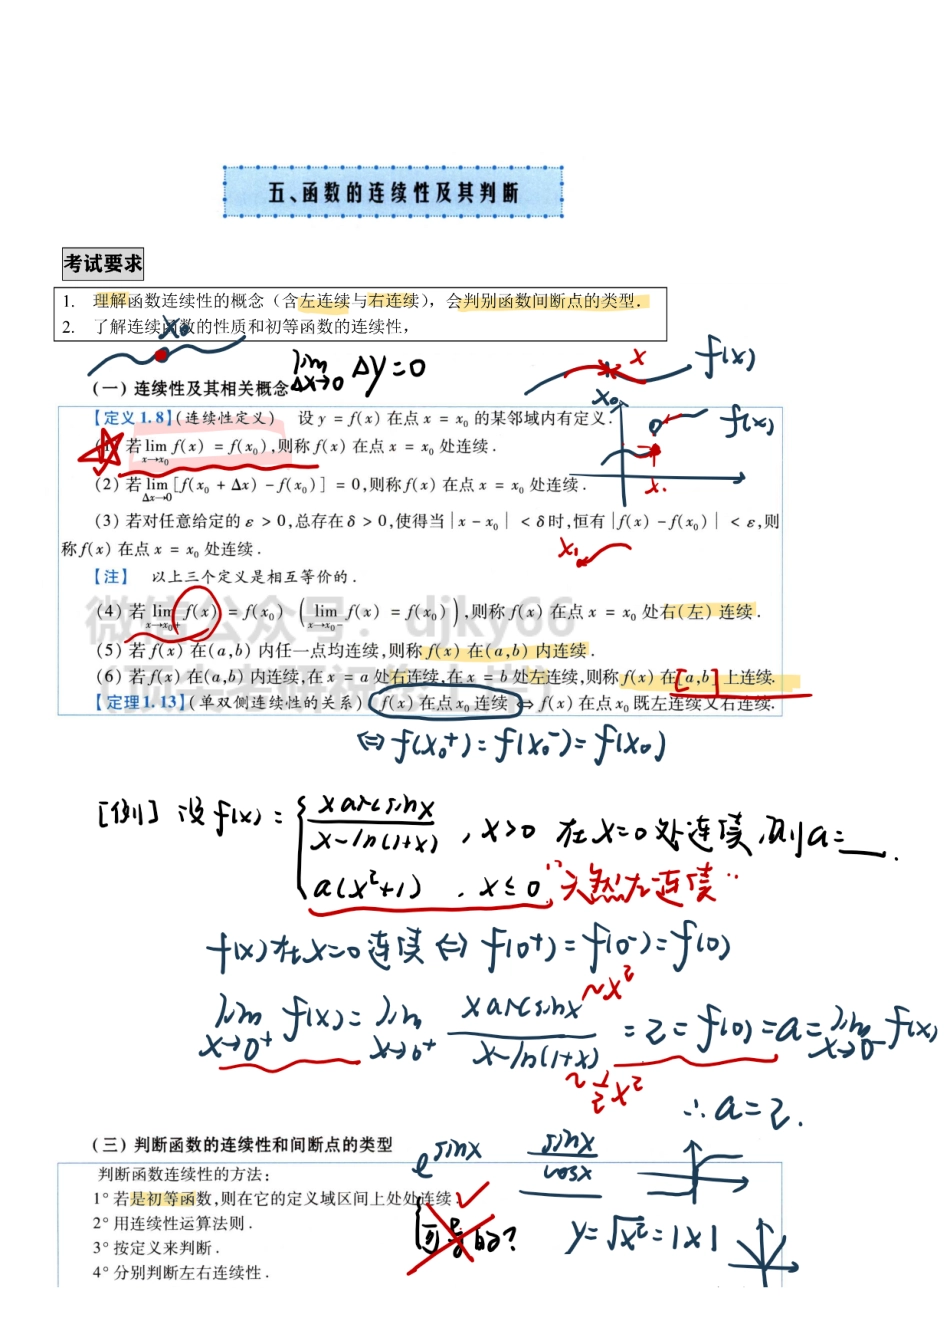 五、函数的连续性及其判断
考试要求
1. 理解函数连续性的概念（含左连续与右连续），会判别函数间断点的类型．
2. 了解连续函数的性质和初等函数的连续性，
x₀
lim Δx→0 Δy=0
x f(x)
(一) 连续性及其相关概念
x₀
【定义1.8】(连续性定义) 设 y = f(x) 在点 x = x₀ 的某邻域内有定义．
f(x)
(1) 若 lim x→x₀ f(x) = f(x₀),则称 f(x) 在点 x = x₀ 处连续．
(2) 若 lim Δx→0 [f(x₀ + Δx) - f(x₀)] = 0,则称 f(x) 在点 x = x₀ 处连续．
(3) 若对任意给定的 ε > 0,总存在 δ > 0,使得当 |x - x₀| < δ 时,恒有 |f(x) - f(x₀)| < ε,则
称 f(x) 在点 x = x₀ 处连续．
【注】 以上三个定义是相互等价的．
微信公众号：djky66
(4) 若 lim x→x₀+ f(x) = f(x₀) (lim x→x₀- f(x) = f(x₀)),则称 f(x) 在点 x = x₀ 处右(左) 连续．
(5) 若 f(x) 在(a,b) 内任一点均连续,则称 f(x) 在(a,b) 内连续．
(6) 若 f(x) 在(a,b) 内连续,在 x = a 处右连续,在 x = b 处左连续,则称 f(x) 在[a,b] 上连续．
【定理1.13】(单双侧连续性的关系) f(x) 在点 x₀ 连续 ⇔ f(x) 在点 x₀ 既左连续又右连续．
⇔ f(x₀⁺) = f(x₀⁻) = f(x₀)
[例] 设 f(x) = { x arcsinx / x-ln(1+x) , x>0 在x=0处连续,则a=__.
a(x²+1) , x≤0 "天然左连续"
f(x)在x=0连续 ⇔ f(0⁺) = f(0⁻) = f(0)
lim x→0⁺ f(x) = lim x→0⁺ x arcsinx ~x² / x-ln(1+x) ~½x² = 2 = f(0) = a = lim x→0⁻ f(x)
∴ a=2.
(三) 判断函数的连续性和间断点的类型
e^sinx sinx/cosx
判断函数连续性的方法：
1° 若是初等函数,则在它的定义域区间上处处连续．
2° 用连续性运算法则．
可导的?
y=√x²=|x|
3° 按定义来判断．
4° 分别判断左右连续性．